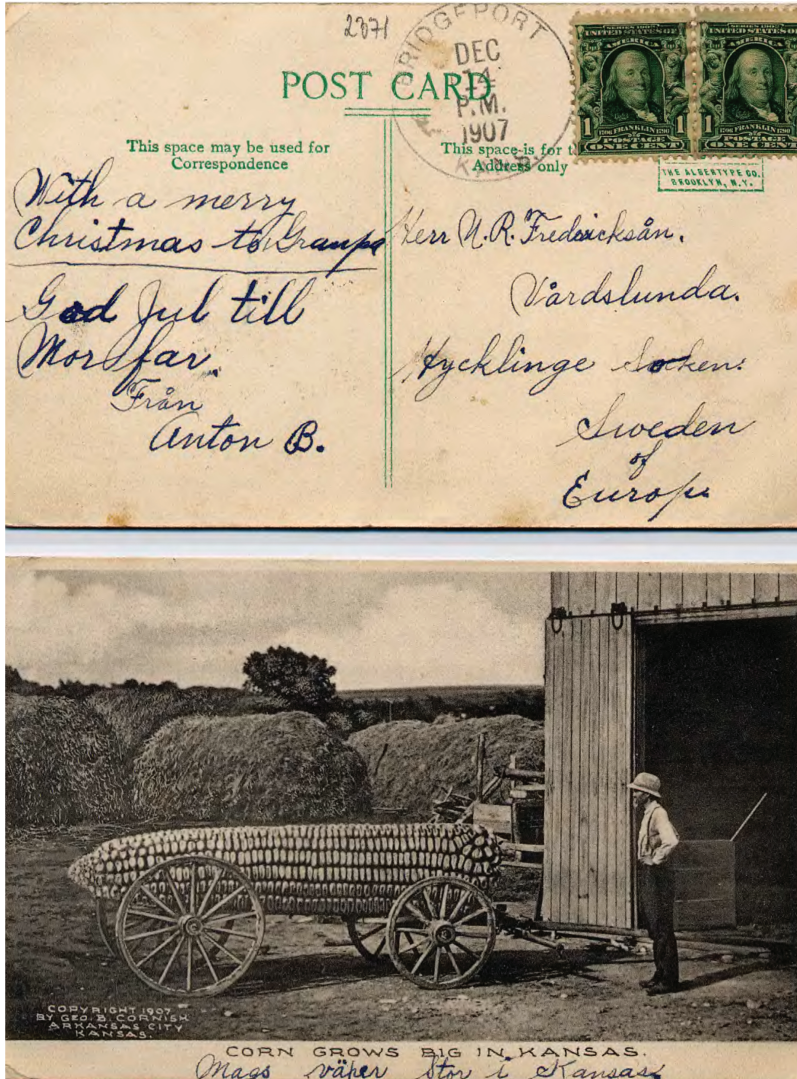 2371
BRIDGEPORT
DEC
14
P.M.
1907
KANS.
POST CARD
SERIES 1902
UNITED STATES OF
AMERICA
1 1706 FRANKLIN 1790 1
POSTAGE
ONE CENT
SERIES 1902
UNITED STATES OF
AMERICA
1 1706 FRANKLIN 1790 1
POSTAGE
ONE CENT
This space may be used for
Correspondence
This space is for t
Address only
THE ALBERTYPE CO.
BROOKLYN, N.Y.
With a merry
Christmas to Graupa
God Jul till
Morfar.
Från
Anton B.
Herr N.R. Fredricksån.
Vårdslunda.
Hycklinge Socken.
Sweden
of
Europe
COPYRIGHT 1907
BY GEO. B. CORNISH
ARKANSAS CITY
KANSAS.
CORN GROWS BIG IN KANSAS.
Mags växer Stor i Kansas